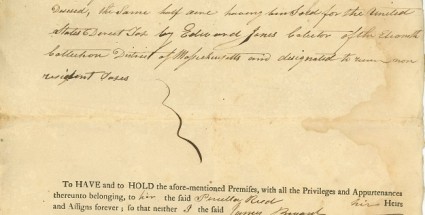 the Same half acre having been Sold for the United
States Direct Tax by Edward Jones Collector of the Eleventh
Collection District of Massachusetts and designated to non
resident Taxes
To HAVE and to HOLD the afore-mentioned Premises, with all the Privileges and Appurtenances
thereunto belonging, to him the said Reed his Heirs
and Assigns forever; so that neither I the said James